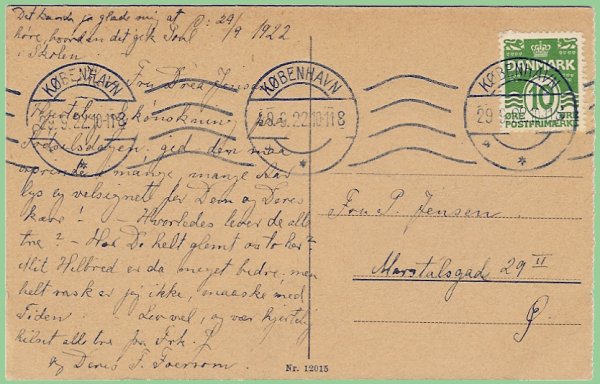 Det kunde jo glæde mig at
høre, hvordan det gik Poul
i Skolen
D: 29/9 1922
Fru Dora Jensen
Hjertelig Lykønskning
Fødselsdagen. gid den maa
oprinde i mange, mange Aar
lys og velsignet for Dem og Deres
kære! - Hvorledes lever de alle
tre? - Har De helt glemt os to her?
Mit Helbred er da meget bedre, men
helt rask er jeg ikke, maaske med
Tiden. - Lev vel, og vær hjertelig
hilset alle tre fra Frk. J
og Deres F.
KØBENHAVN
29.9.22.10-11 8
KØBENHAVN
29.9.22.10-11 8
KØBENHAVN
29.9.22
DANMARK
10
ØRE ØRE
POSTFRIMÆRKE
Fru P. Jensen
Marstalsgad 29 II
Ø.
Nr. 12015